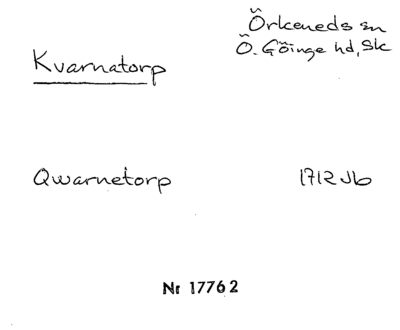 Örkeneds sn
Ö. Göinge hd, Sk
Kvarnatorp
Qwarnetorp 1712 Jb
Nr 17762